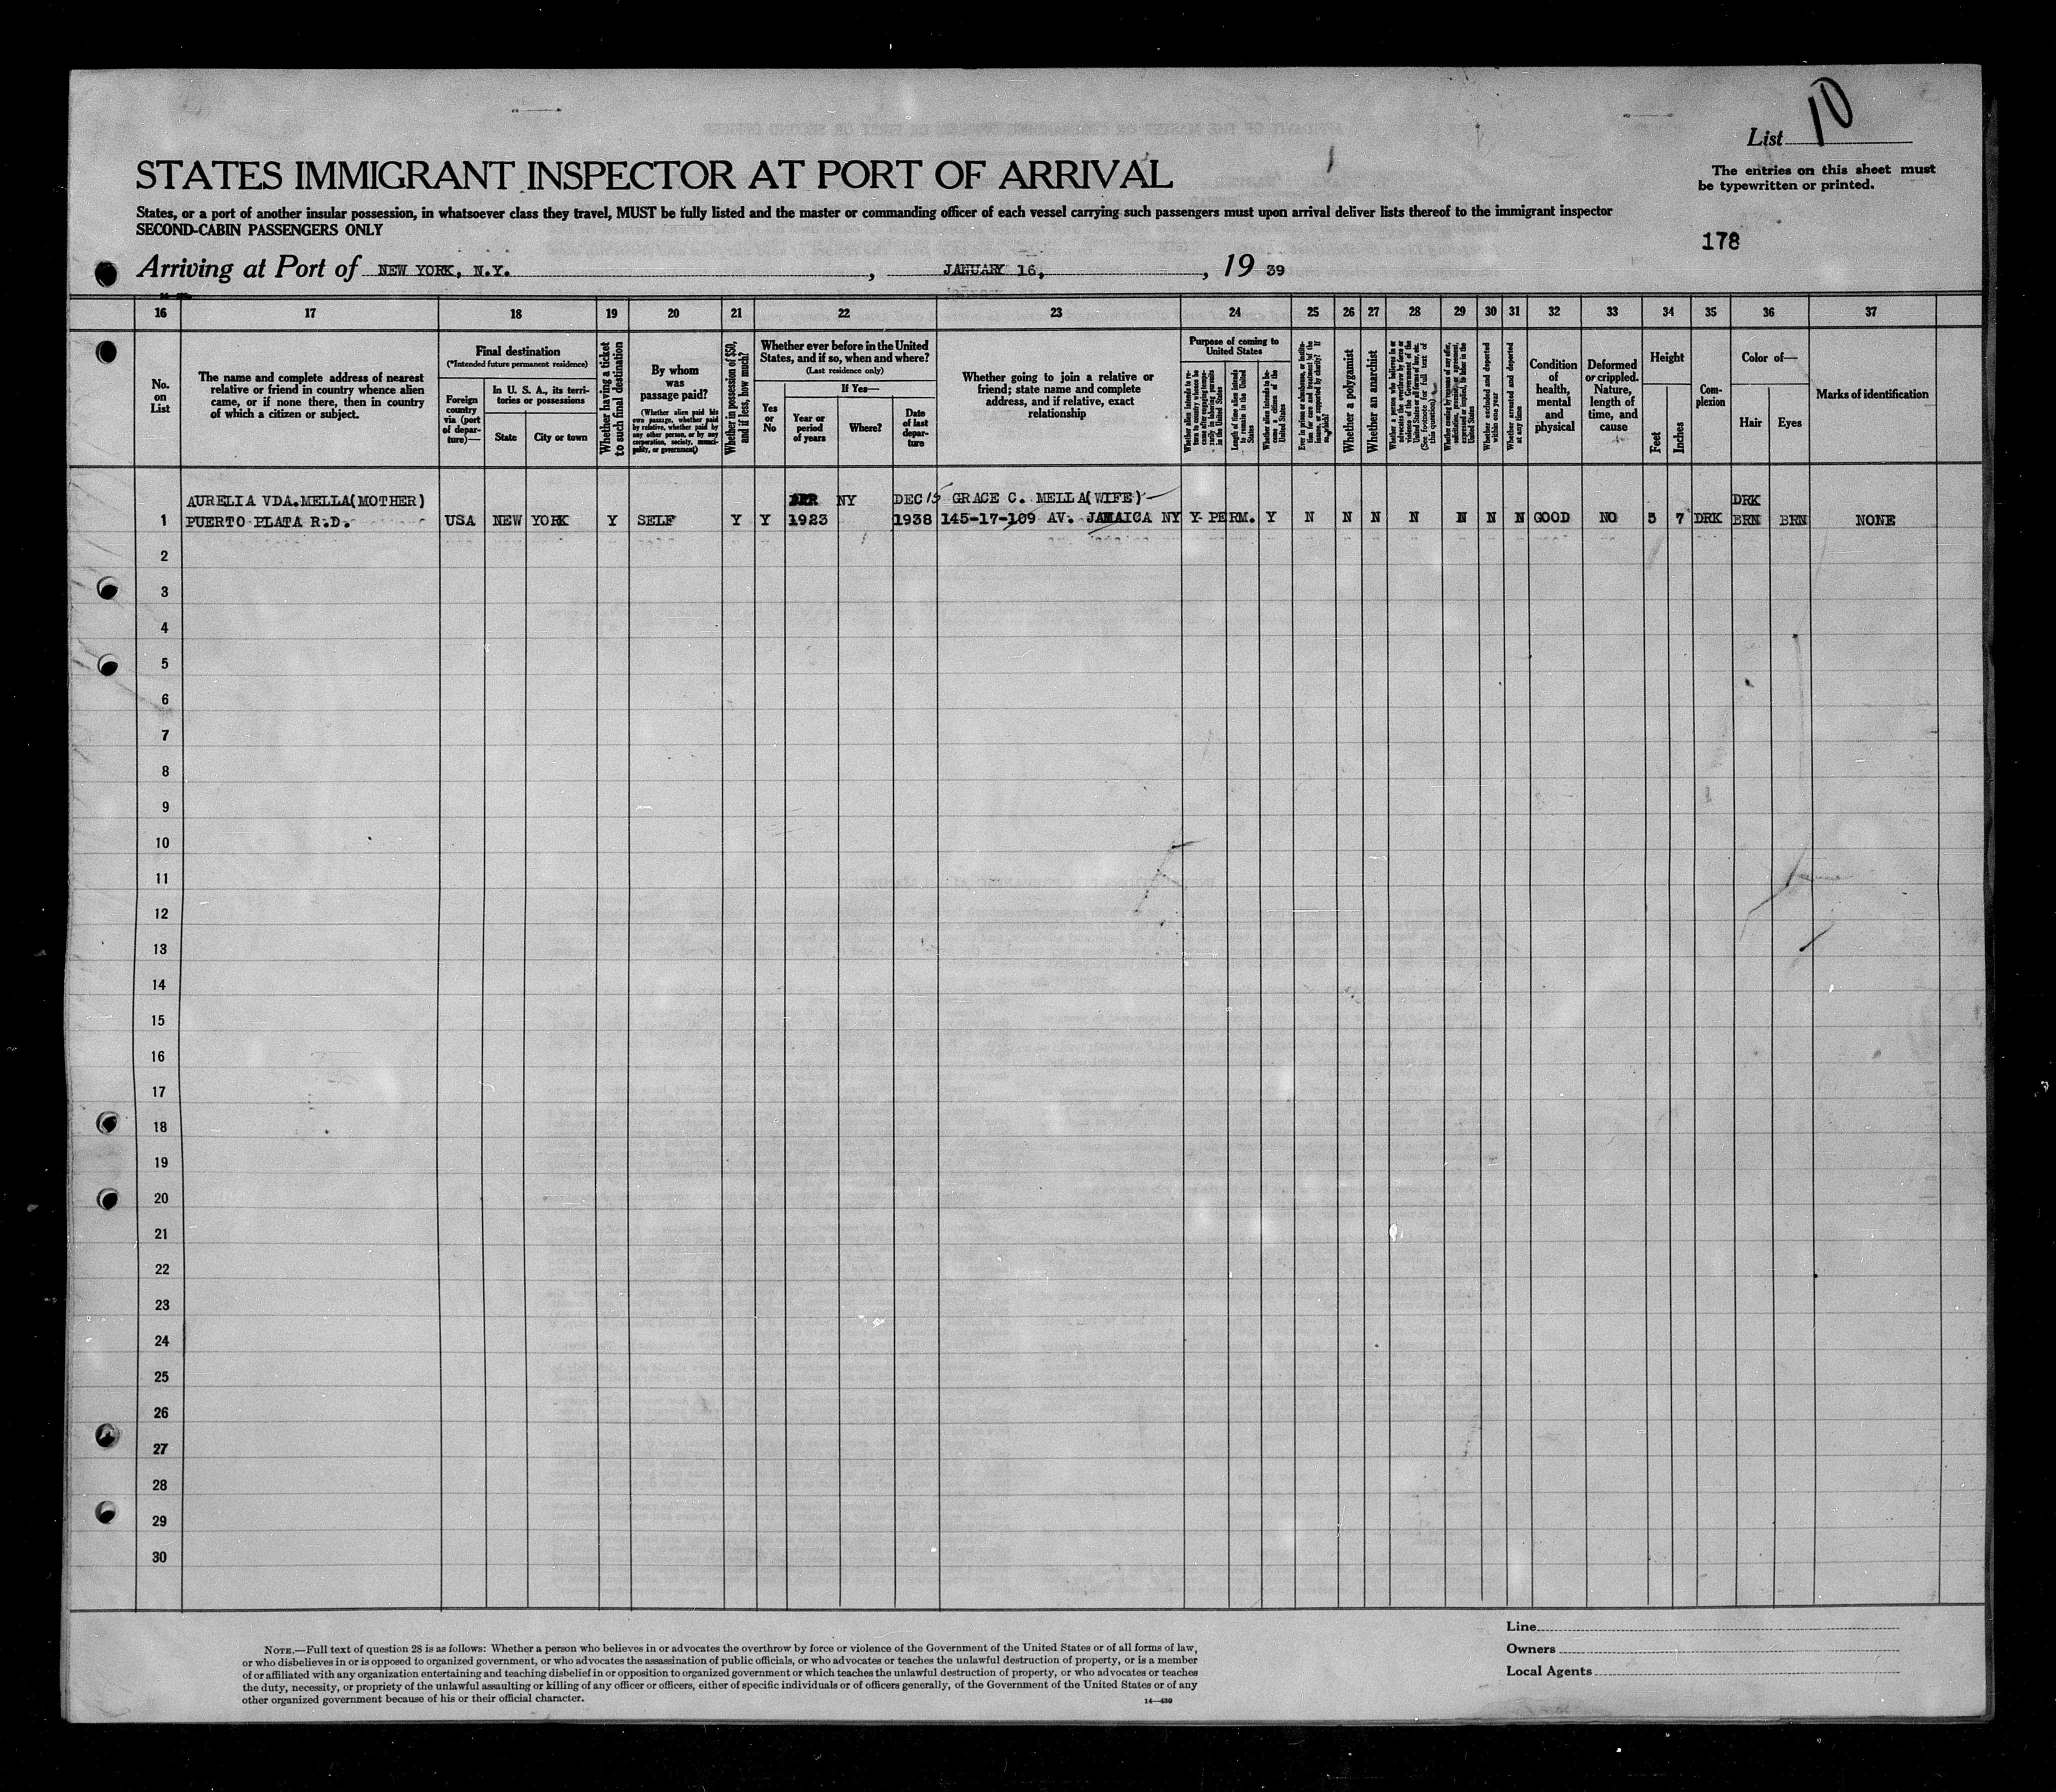 List 10
STATES IMMIGRANT INSPECTOR AT PORT OF ARRIVAL
The entries on this sheet must
be typewritten or printed.
States, or a port of another insular possession, in whatsoever class they travel, MUST be fully listed and the master or commanding officer of each vessel carrying such passengers must upon arrival deliver lists thereof to the immigrant inspector
SECOND-CABIN PASSENGERS ONLY
178
Arriving at Port of NEW YORK, N.Y. , JANUARY 16, , 19 39
16 17 18 19 20 21 22 23 24 25 26 27 28 29 30 31 32 33 34 35 36 37
No.
on
List
The name and complete address of nearest
relative or friend in country whence alien
came, or if none there, then in country
of which a citizen or subject.
Final destination
(*Intended future permanent residence)
Foreign
country
via (port
of depar-
ture)—
In U. S. A., its terri-
tories or possessions
State
City or town
Whether having a ticket
to such final destination
By whom
was
passage paid?
(Whether alien paid his
own passage, whether paid
by relative, whether paid by
any other person, or by any
corporation, society, munici-
pality, or government)
Whether in possession of $50,
and if less, how much?
Whether ever before in the United
States, and if so, when and where?
(Last residence only)
Yes
or
No
If Yes—
Year or
period
of years
Where?
Date
of last
depar-
ture
Whether going to join a relative or
friend; state name and complete
address, and if relative, exact
relationship
Purpose of coming to
United States
Whether alien intends to re-
turn to country whence he
came after engaging tempo-
rarily in laboring pursuits
in the United States
Length of time alien intends
to remain in the United
States
Whether alien intends to be-
come a citizen of the
United States
Ever in prison or almshouse, or institu-
tion for care and treatment of the
insane, or supported by charity? If
so, which?
Whether a polygamist
Whether an anarchist
Whether a person who believes in or
advocates the overthrow by force or
violence of the Government of the
United States or all forms of law, etc.
(See footnote for full text of
this question)
Whether coming by reason of any offer,
solicitation, promise, or agreement,
expressed or implied, to labor in the
United States
Whether excluded and deported
within one year
Whether arrested and deported
at any time
Condition
of
health,
mental
and
physical
Deformed
or crippled.
Nature,
length of
time, and
cause
Height
Feet
Inches
Com-
plexion
Color of—
Hair
Eyes
Marks of identification
AURELIA VDA.MELLA(MOTHER) NY DEC 15 GRACE C. MELLA(WIFE) DRK
1 PUERTO PLATA R.D. USA NEW YORK Y SELF Y Y 1923 1938 145-17-109 AV. JAMAICA NY Y- PERM. Y N N N N N N N GOOD NO 5 7 DRK BRN BRN NONE
2
3
4
5
6
7
8
9
10
11
12
13
14
15
16
17
18
19
20
21
22
23
24
25
26
27
28
29
30
Line
Owners
Local Agents
NOTE.—Full text of question 28 is as follows: Whether a person who believes in or advocates the overthrow by force or violence of the Government of the United States or of all forms of law,
or who disbelieves in or is opposed to organized government, or who advocates the assassination of public officials, or who advocates or teaches the unlawful destruction of property, or is a member
of or affiliated with any organization entertaining and teaching disbelief in or opposition to organized government or which teaches the unlawful destruction of property, or who advocates or teaches
the duty, necessity, or propriety of the unlawful assaulting or killing of any officer or officers, either of specific individuals or of officers generally, of the Government of the United States or of any
other organized government because of his or their official character.
14—430